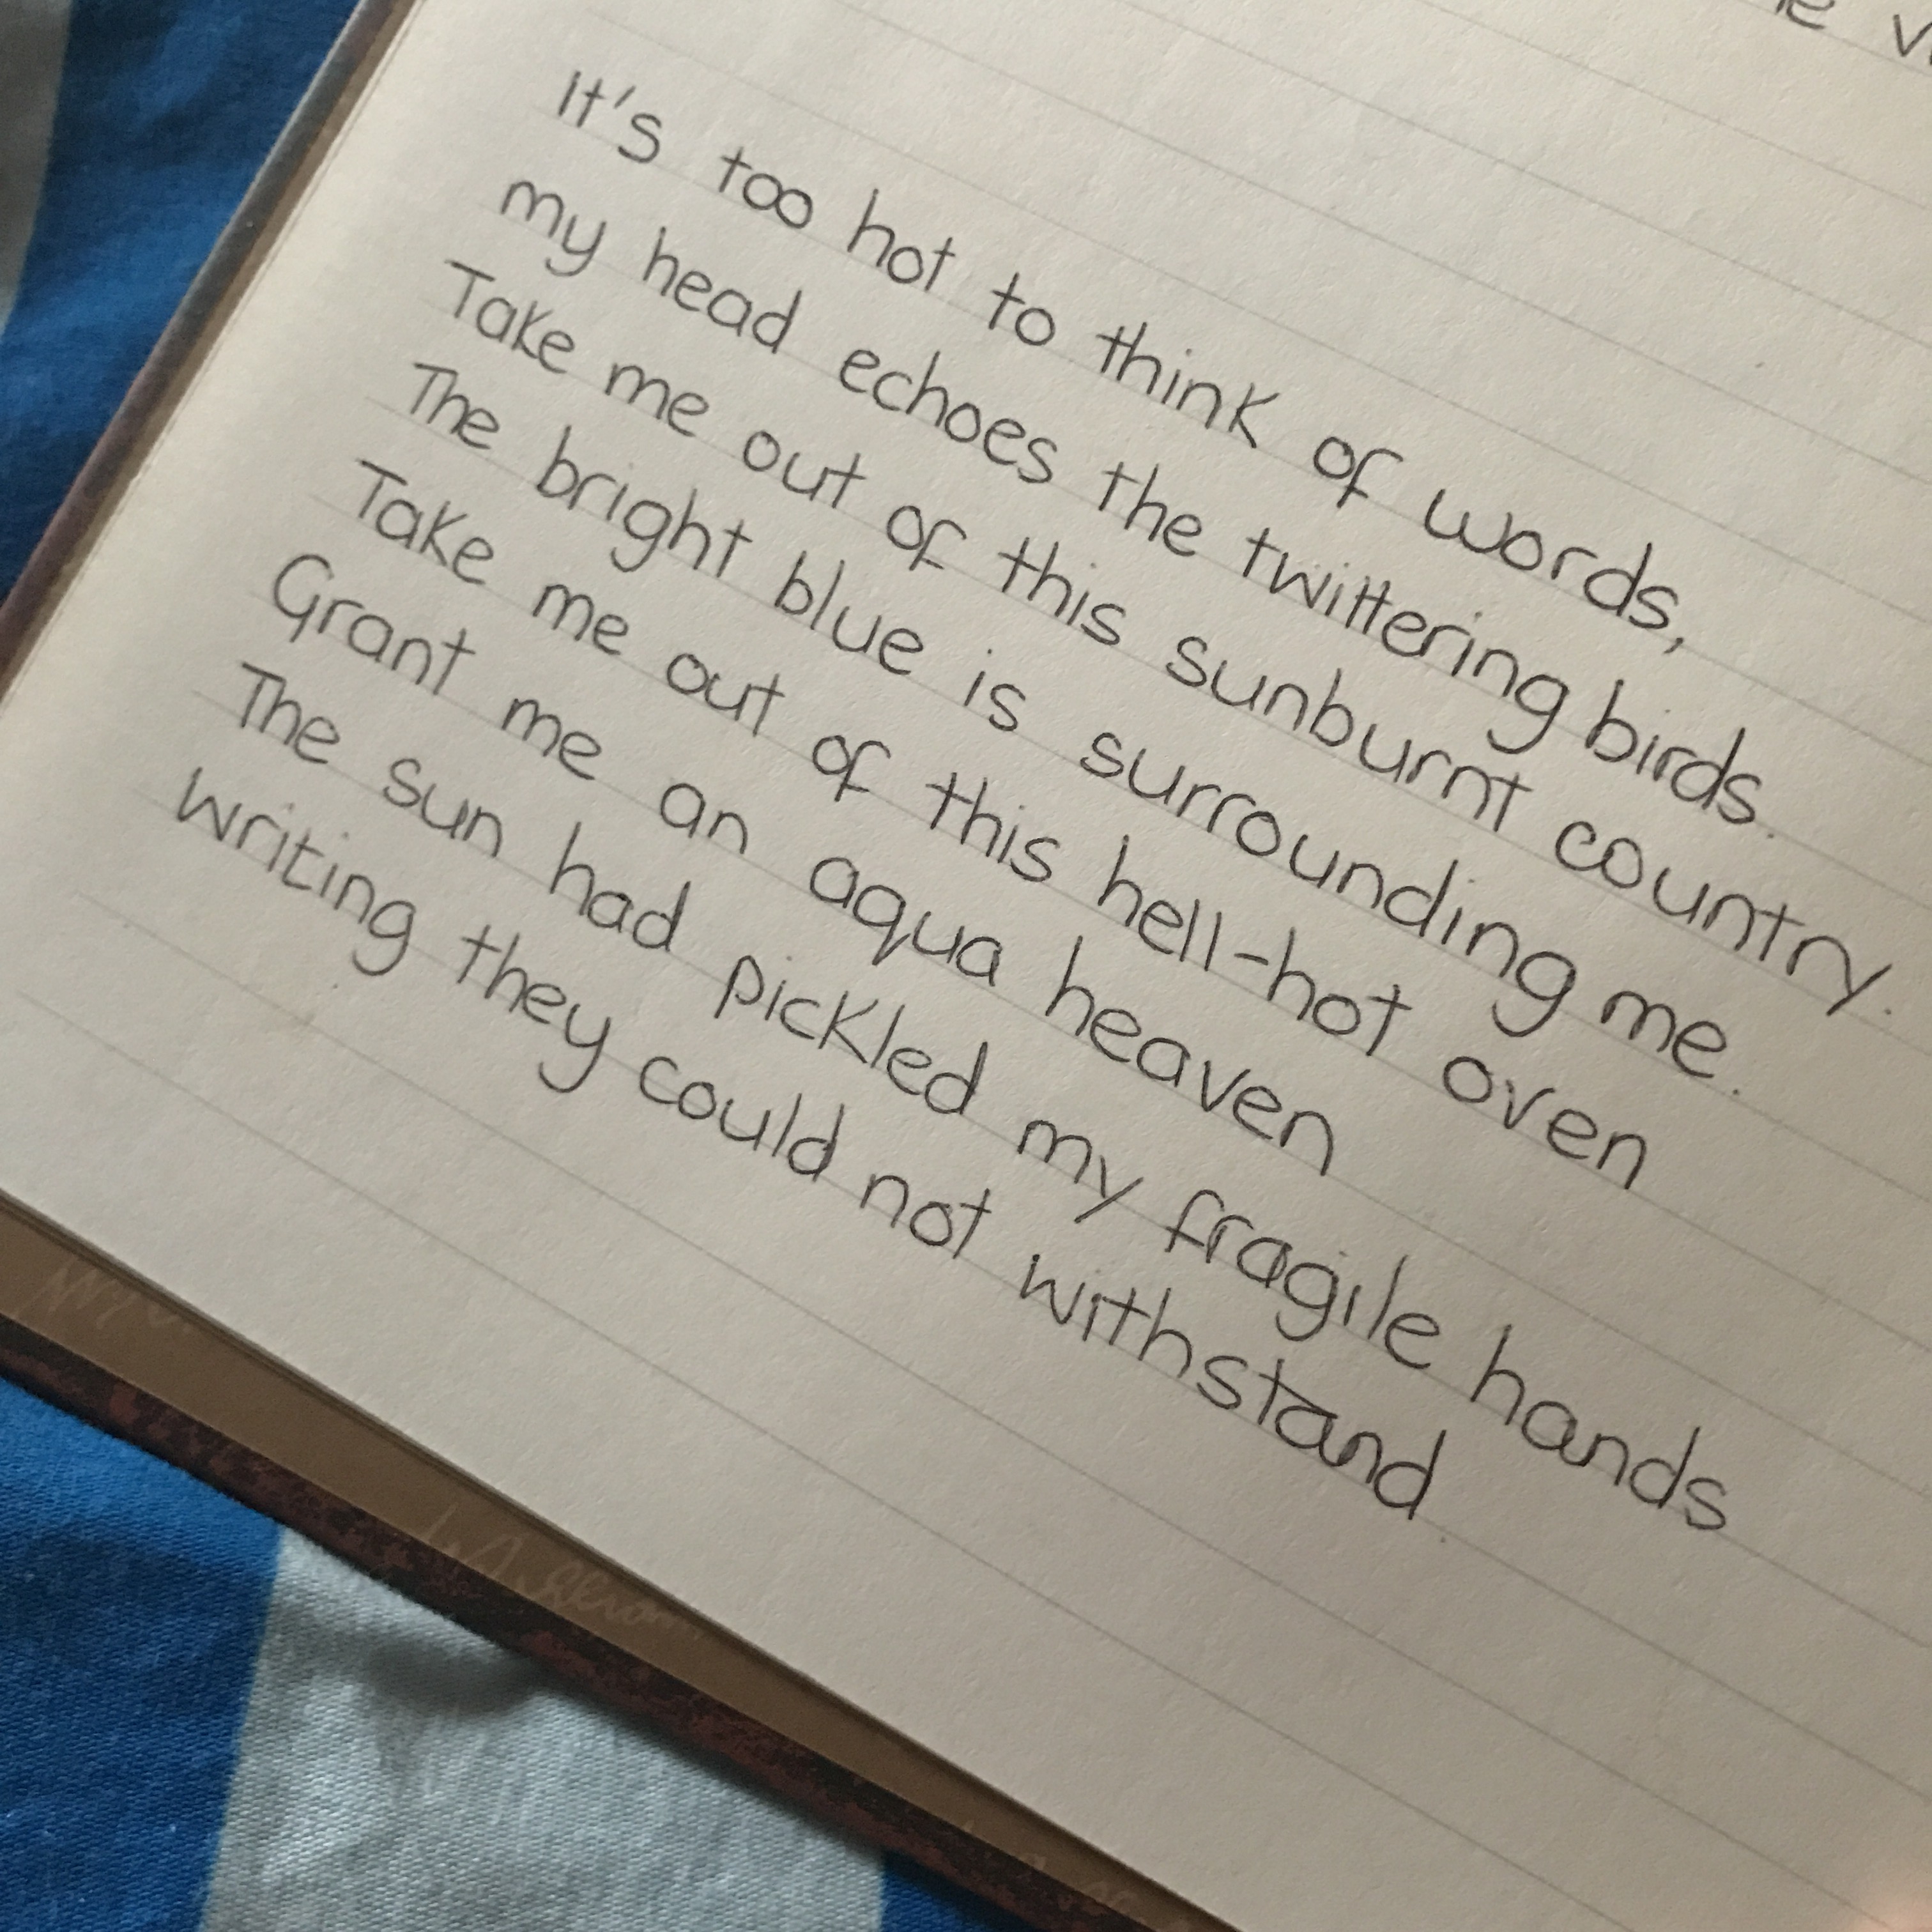 It's too hot to think of words,
my head echoes the twittering birds.
Take me out of this sunburnt country.
The bright blue is surrounding me.
Take me out of this hell-hot oven
Grant me an aqua heaven
The sun had pickled my fragile hands
writing they could not withstand.